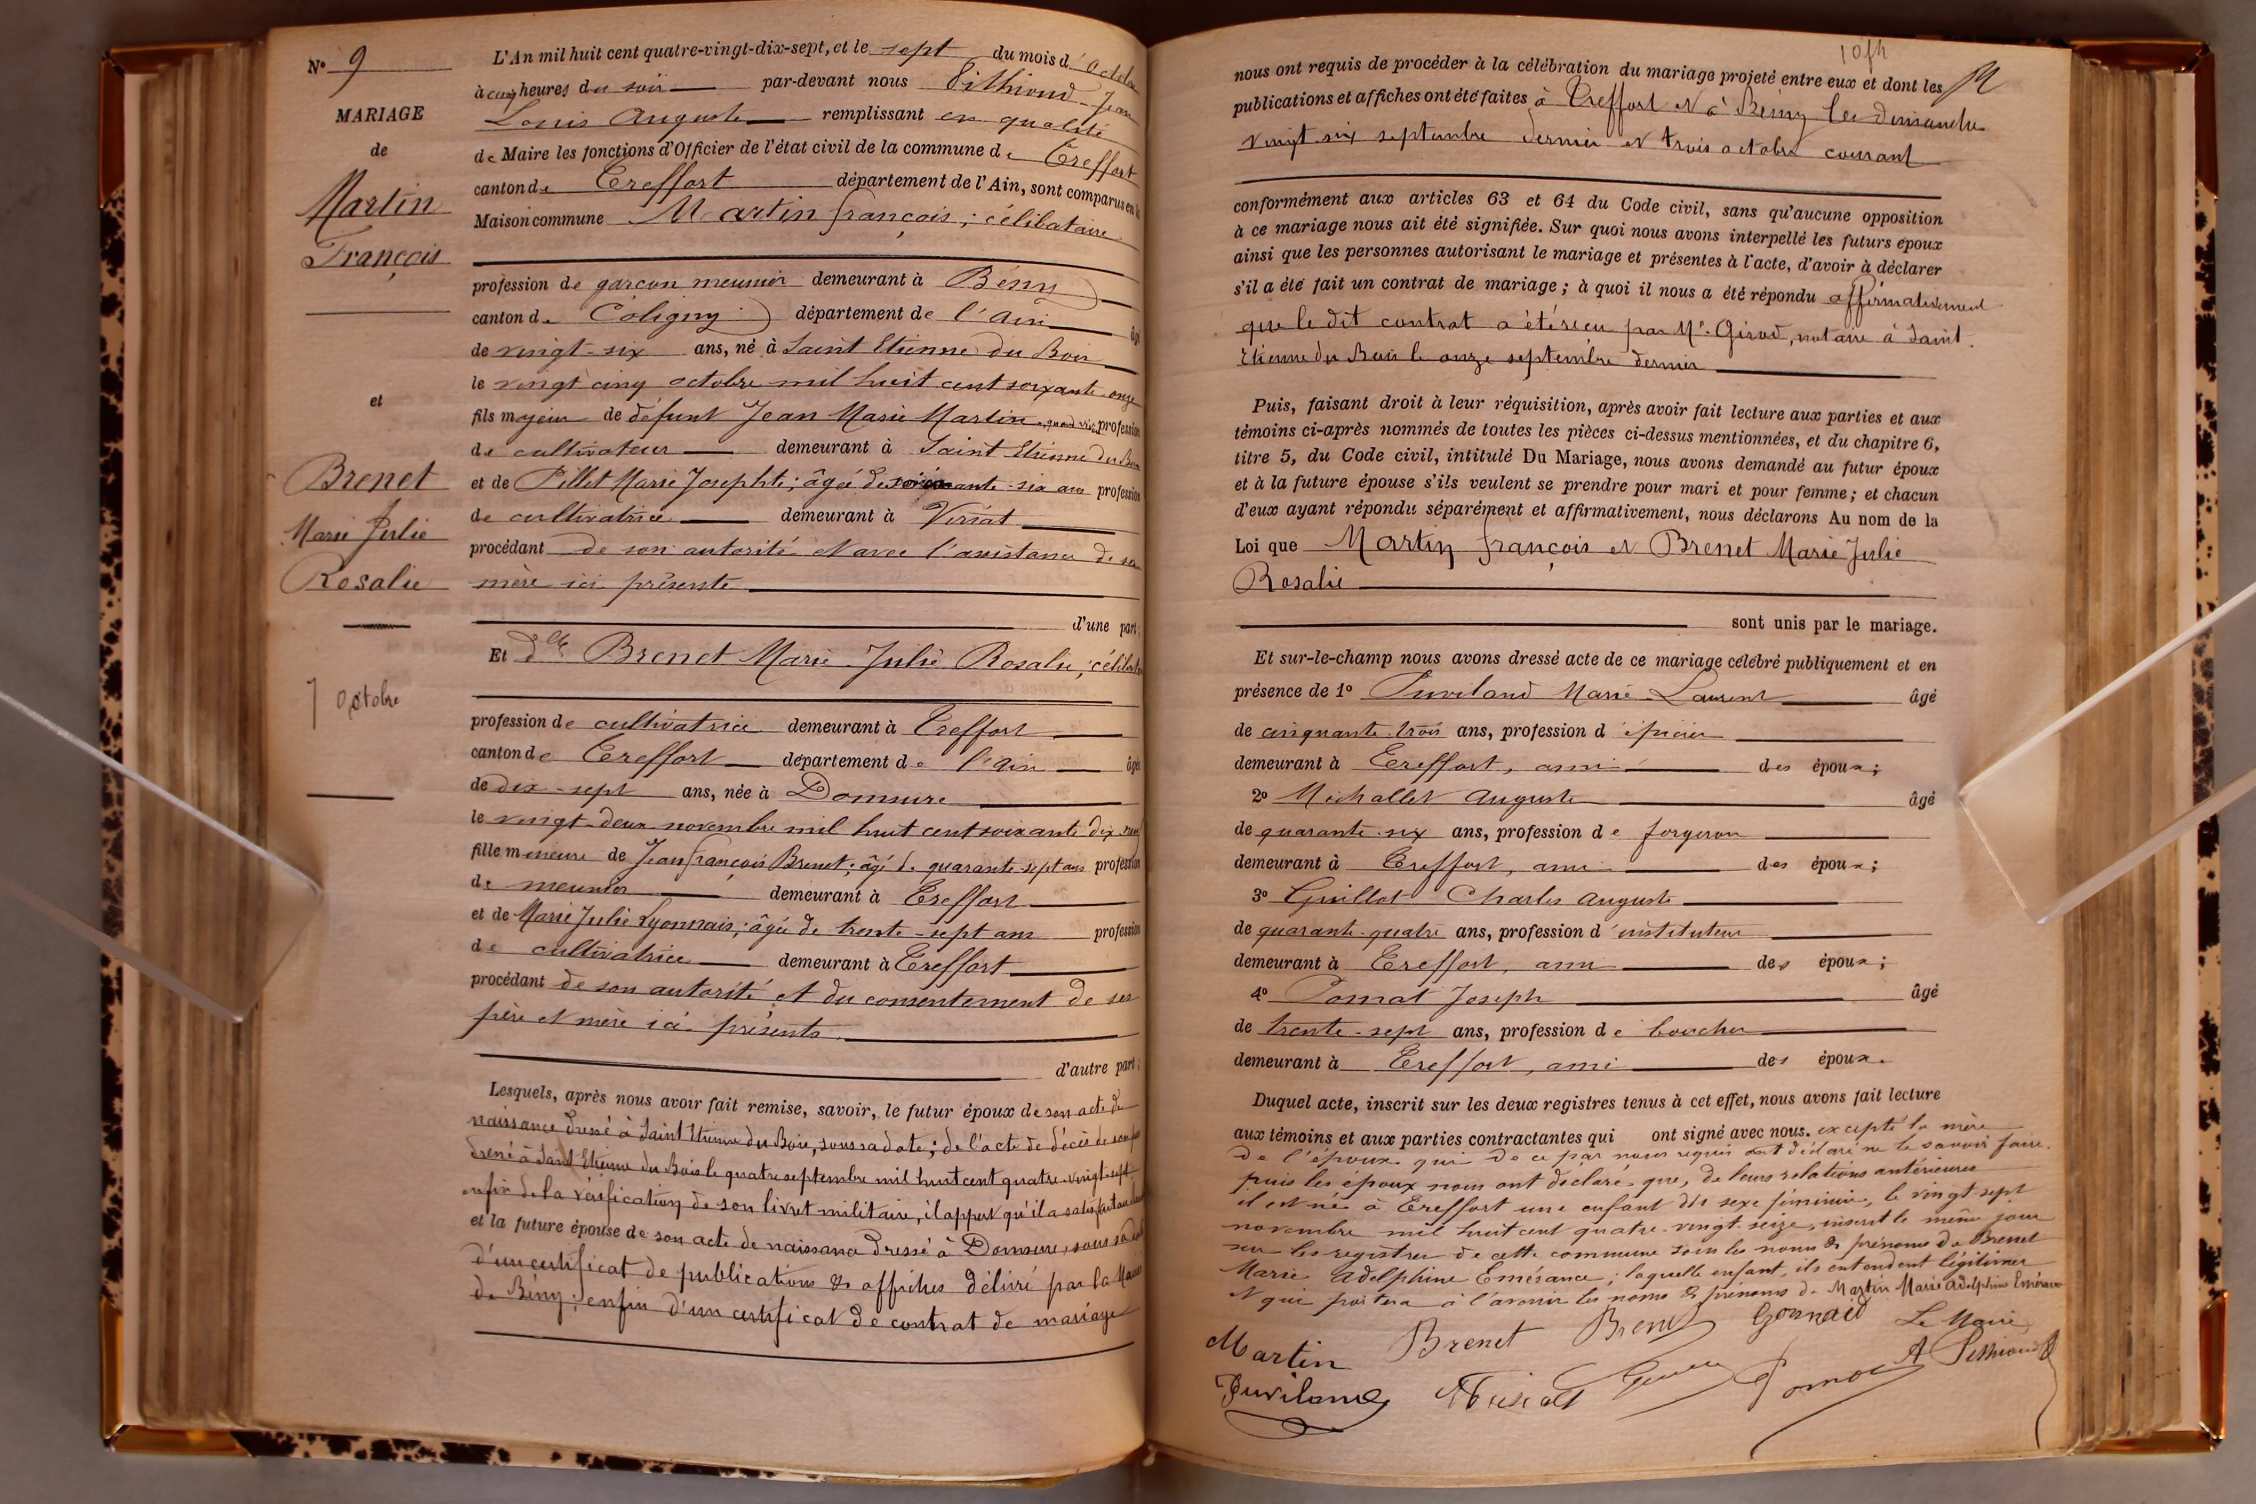 N° 9
MARIAGE
de
Martin
François
et
Brenet
Marie Julie
Rosalie
7 Octobre
L'An mil huit cent quatre-vingt-dix-sept, et le sept du mois d'octobre
à cinq heures du soir par-devant nous Pithioud Jean
Louis Auguste remplissant en qualité
de Maire les fonctions d'Officier de l'état civil de la commune de Treffort
canton de Treffort département de l'Ain, sont comparus en la
Maison commune Martin françois ; célibataire
profession de garçon meunier demeurant à Bény
canton de Coligny département de l'Ain âgé
de vingt-six ans, né à Saint Etienne du Bois
le vingt cinq octobre mil huit cent soixante onze
fils majeur de défunt Jean Marie Martin quand vivait profession
de cultivateur demeurant à Saint Etienne du Bois
et de Pillet Marie Josephte ; âgée de soixante-six ans profession
de cultivatrice demeurant à Viriat
procédant de son autorité et avec l'assistance de sa
mère ici présente
d'une part ;
Et dlle Brenet Marie Julie Rosalie ; célibataire
profession de cultivatrice demeurant à Treffort
canton de Treffort département de l'ain âgée
de dix-sept ans, née à Domsure
le vingt-deux novembre mil huit cent soixante dix neuf
fille mineure de Jean françois Brenet ; âgé de quarante-sept ans profession
de meunier demeurant à Treffort
et de Marie Julie Lyonnais ; âgée de trente-sept ans profession
de cultivatrice demeurant à Treffort
procédant de son autorité et du consentement de ses
père et mère ici présents
d'autre part ;
Lesquels, après nous avoir fait remise, savoir, le futur époux de son acte de
naissance dressé à Saint Etienne du Bois, sous sa date ; de l'acte de décès de son père
dressé à Saint Etienne du Bois le quatre septembre mil huit cent quatre-vingt-sept
enfin de la vérification de son livret militaire, il appert qu'il a satisfait au
et la future épouse de son acte de naissance dressé à Domsure, sous sa date
d'un certificat de publications & affiches délivré par la Mairie
de Bény ; enfin d'un certificat de contrat de mariage
nous ont requis de procéder à la célébration du mariage projeté entre eux et dont les
publications et affiches ont été faites à Treffort et à Bény les dimanches
vingt six septembre dernier et trois octobre courant
conformément aux articles 63 et 64 du Code civil, sans qu'aucune opposition
à ce mariage nous ait été signifiée. Sur quoi nous avons interpellé les futurs époux
ainsi que les personnes autorisant le mariage et présentes à l'acte, d'avoir à déclarer
s'il a été fait un contrat de mariage ; à quoi il nous a été répondu affirmativement
que le dit contrat a été reçu par Me Girod, notaire à Saint
Etienne du Bois le onze septembre dernier
Puis, faisant droit à leur réquisition, après avoir fait lecture aux parties et aux
témoins ci-après nommés de toutes les pièces ci-dessus mentionnées, et du chapitre 6,
titre 5, du Code civil, intitulé Du Mariage, nous avons demandé au futur époux
et à la future épouse s'ils veulent se prendre pour mari et pour femme ; et chacun
d'eux ayant répondu séparément et affirmativement, nous déclarons Au nom de la
Loi que Martin françois et Brenet Marie Julie
Rosalie
sont unis par le mariage.
Et sur-le-champ nous avons dressé acte de ce mariage célébré publiquement et en
présence de 1° Puviland Marie Laurent âgé
de cinquante trois ans, profession d'épicier
demeurant à Treffort, ami des époux ;
2° Michallet Auguste âgé
de quarante-six ans, profession de forgeron
demeurant à Treffort, ami des époux ;
3° Guillot Charles Auguste
de quarante-quatre ans, profession d'instituteur
demeurant à Treffort, ami des époux ;
4° Pomat Joseph âgé
de trente-sept ans, profession de boucher
demeurant à Treffort, ami des époux.
Duquel acte, inscrit sur les deux registres tenus à cet effet, nous avons fait lecture
aux témoins et aux parties contractantes qui ont signé avec nous. excepté la mère
de l'époux qui de ce par nous requis ont déclaré ne le savoir faire.
puis les époux nous ont déclaré que, de leurs relations antérieures
il est né à Treffort une enfant du sexe féminin, le vingt-sept
novembre mil huit cent quatre-vingt-seize, inscrit le même jour
sur les registres de cette commune sous les noms & prénoms de Brenet
Marie Adelphine Emérance ; laquelle enfant, ils entendent légitimer
et qui portera à l'avenir les noms & prénoms de Martin Marie Adelphine Emérance
Martin Brenet Brenet Le Maire
Puviland Pomat A Pithioud